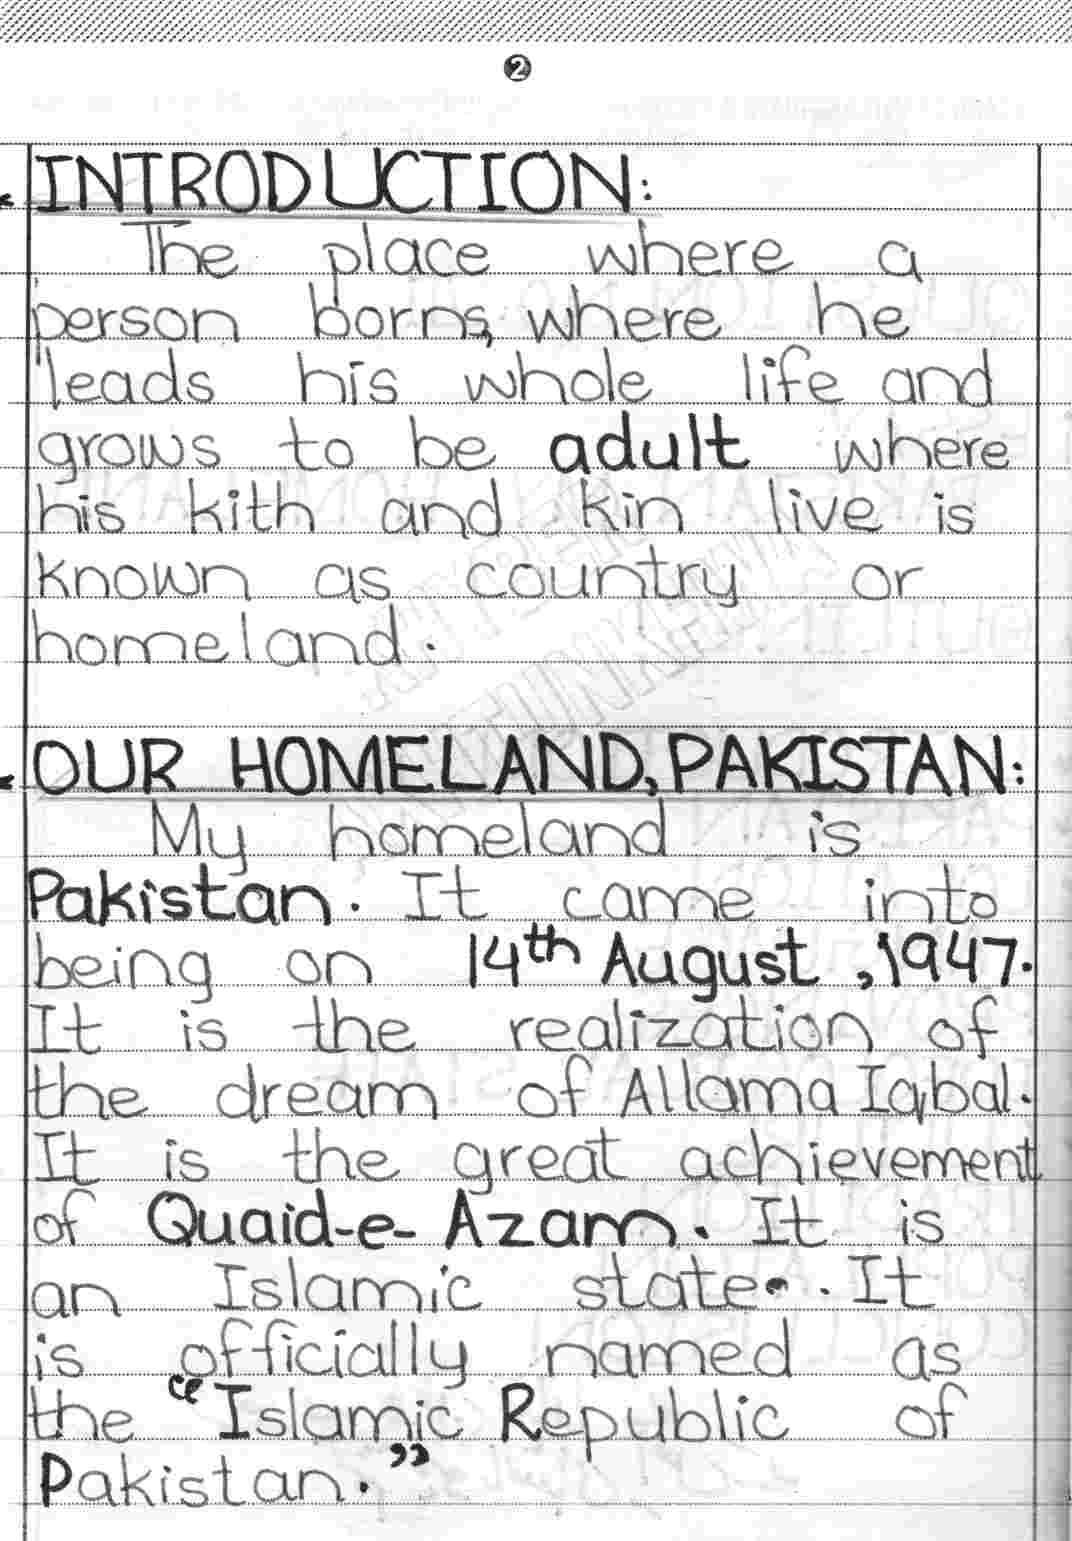 2
INTRODUCTION:
The place where a
person borns, where he
leads his whole life and
grows to be adult where
his kith and kin live is
known as country or
homeland.
OUR HOMELAND, PAKISTAN:
My homeland is
Pakistan. It came into
being on 14th August, 1947.
It is the realization of
the dream of Allama Iqbal.
It is the great achievement
of Quaid-e-Azam. It is
an Islamic state. It
is officially named as
the "Islamic Republic of
Pakistan."